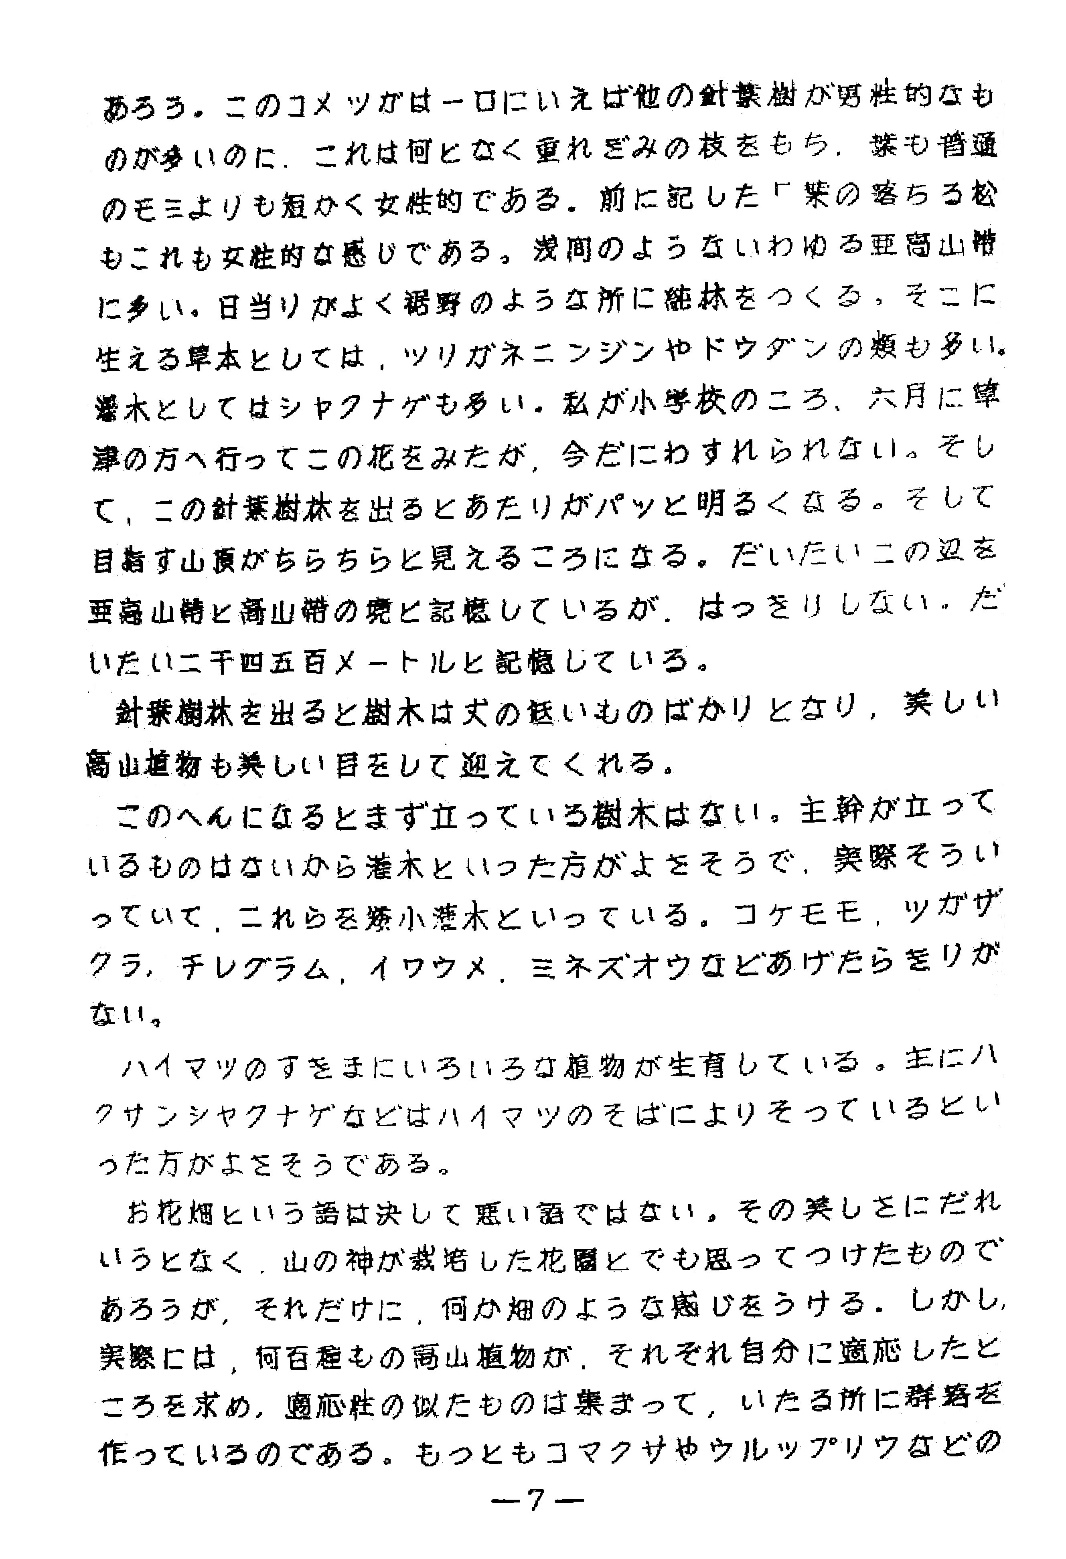 あろう。このコメツガは一口にいえば他の針葉樹が男性的なも
のが多いのに、これは何となく重れぎみの枝をもち、葉も普通
のモミよりも短かく女性的である。前に記した「葉の落ちる松
もこれも女性的な感じである。浅間のようないわゆる亜高山帯
に多い。日当りがよく裾野のような所に純林をつくる。そこに
生える草本としては、ツリガネニンジンやドウダンの類も多い。
灌木としてはシャクナゲも多い。私が小学校のころ、六月に草
津の方へ行ってこの花をみたが、今だにわすれられない。そし
て、この針葉樹林を出るとあたりがパッと明るくなる。そして
目指す山頂がちらちらと見えるころになる。だいたいこの辺を
亜高山帯と高山帯の境と記憶しているが、はっきりしない。だ
いたい二千四五百メートルと記憶している。
針葉樹林を出ると樹木は丈の低いものばかりとなり、美しい
高山植物も美しい目をして迎えてくれる。
このへんになるとまず立っている樹木はない。主幹が立って
いるものはないから灌木といった方がよさそうで、実際そうい
っていて、これらを矮小灌木といっている。コケモモ、ツガザ
クラ、チレグラム、イワウメ、ミネズオウなどあげたらきりが
ない。
ハイマツのすきまにいろいろな植物が生育している。主にハ
クサンシャクナゲなどはハイマツのそばによりそっているとい
った方がよさそうである。
お花畑という語は決して悪い語ではない。その美しさにだれ
いうとなく、山の神が栽培した花園とでも思ってつけたもので
あろうが、それだけに、何か畑のような感じをうける。しかし、
実際には、何百種もの高山植物が、それぞれ自分に適応したと
ころを求め、適応性の似たものは集まって、いたる所に群落を
作っているのである。もっともコマクサやウルップリウなどの
—7—